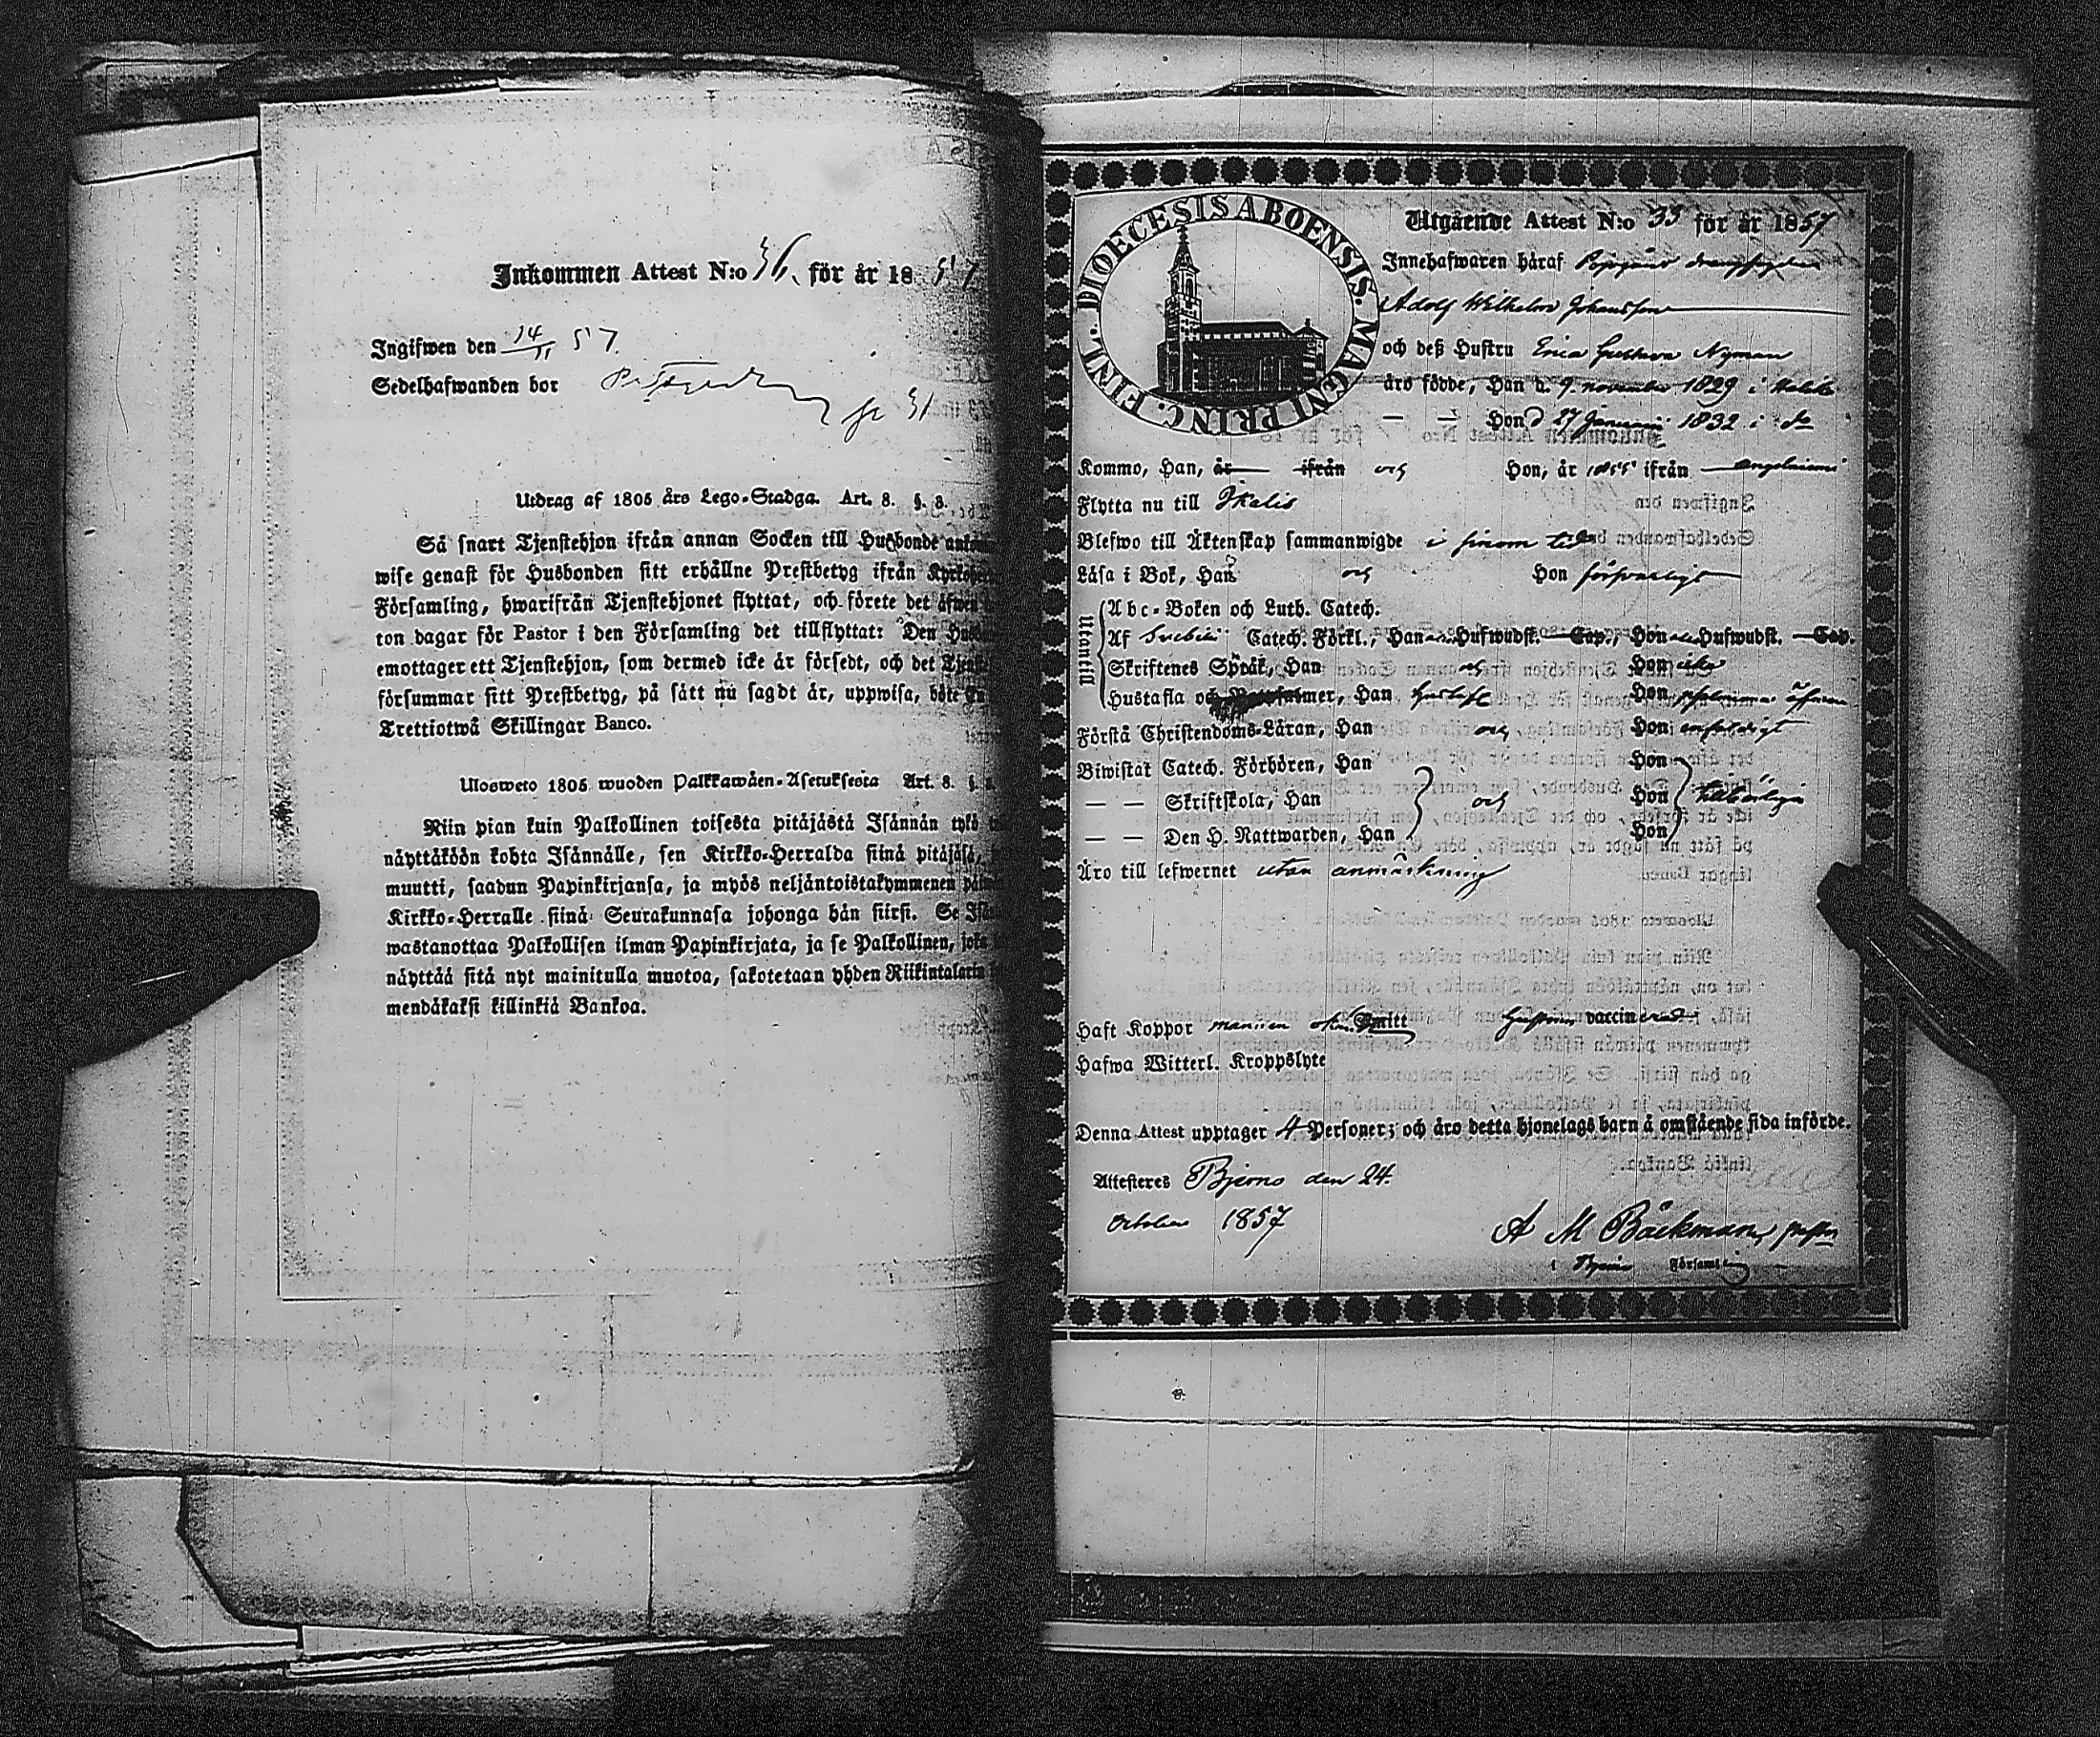 Inkommen Attest N:o 36. för år 1857
Ingifwen den 14/11 57.
Sedelhafwanden bor
31
Utdrag af 1805 års Lego-Stadga. Art. 8. §. 8.
Så snart Tjenstehjon ifrån annan Socken till Husbonde
wise genast för Husbonden sitt erhållne Prestbetyg ifrån
Församling, hwarifrån Tjenstehjonet flyttat, och förete det äfwen
ton dagar för Pastor i den Församling det tillflyttat: Den
emottager ett Tjenstehjon, som dermed icke är försedt, och det
försummar sitt Prestbetyg, på sätt nu sagdt är, uppwisa, böte
Trettiotwå Skillingar Banco.
Ulosweto 1805 wuoden Palkkawäen-Asetuksesta Art. 8. §.
Niin pian kuin Palkollinen toisesta pitäjästä Isännän tykö
näyttäköön kohta Isännälle, sen Kirkko-Herralda siinä pitäjäsä,
muutti, saadun Papinkirjansa, ja myös neljäntoistakymmenen
Kirkko-Herralle siinä Seurakunnasa johonga hän siirsi. Se
wastanottaa Palkollisen ilman Papinkirjata, ja se Palkollinen, joka
näyttää sitä nyt mainitulla muotoa, sakotetaan yhden Riikintalarin
mendäkaksi killinkiä Bankoa.
DIOECESIS ABOENSIS. MAGNI PRINC. FINL.
Utgående Attest N:o 33 för år 1857
Innehafwaren håraf
Adolf Wilhelm Johansson
och deß Hustru Erica Gustava Nyman
äro födde, Han d. 9 november 1829 i
— — Hon d 27 Januarii 1832 i do
Kommo, Han, år ifrån och Hon, år 1855 ifrån Angelniemi
Flytta nu till Ikalis
Blefwo till Äktenskap sammanwigde i sinom tid
Läsa i Bok, Han och Hon förswarligt
Utantill
Abc-Boken och Luth. Catech.
Af Svebilii Catech. Förkl., Han Hufwudst. Cap., Hon Hufwudst. Cap.
Skriftenes Språk, Han och Hon
Hustafla och Han hustafl Hon psalmerna
Förstå Christendoms-Läran, Han och Hon enfaldigt
Biwistat Catech. Förhören, Han Hon
— — Skriftskola, Han och Hon tillbörligen
— — Den H. Nattwarden, Han Hon
Äro till lefwernet utan anmärkning
Haft Koppor mannen Smitt hustrun vaccinerad
Hafwa Witterl. Kroppslyte
Denna Attest upptager 4 Personer; och äro detta hjonelags barn å omstående sida införde.
Attesteras Bjerno den 24.
october 1857
A M Bäckman
i Bjerno Församling